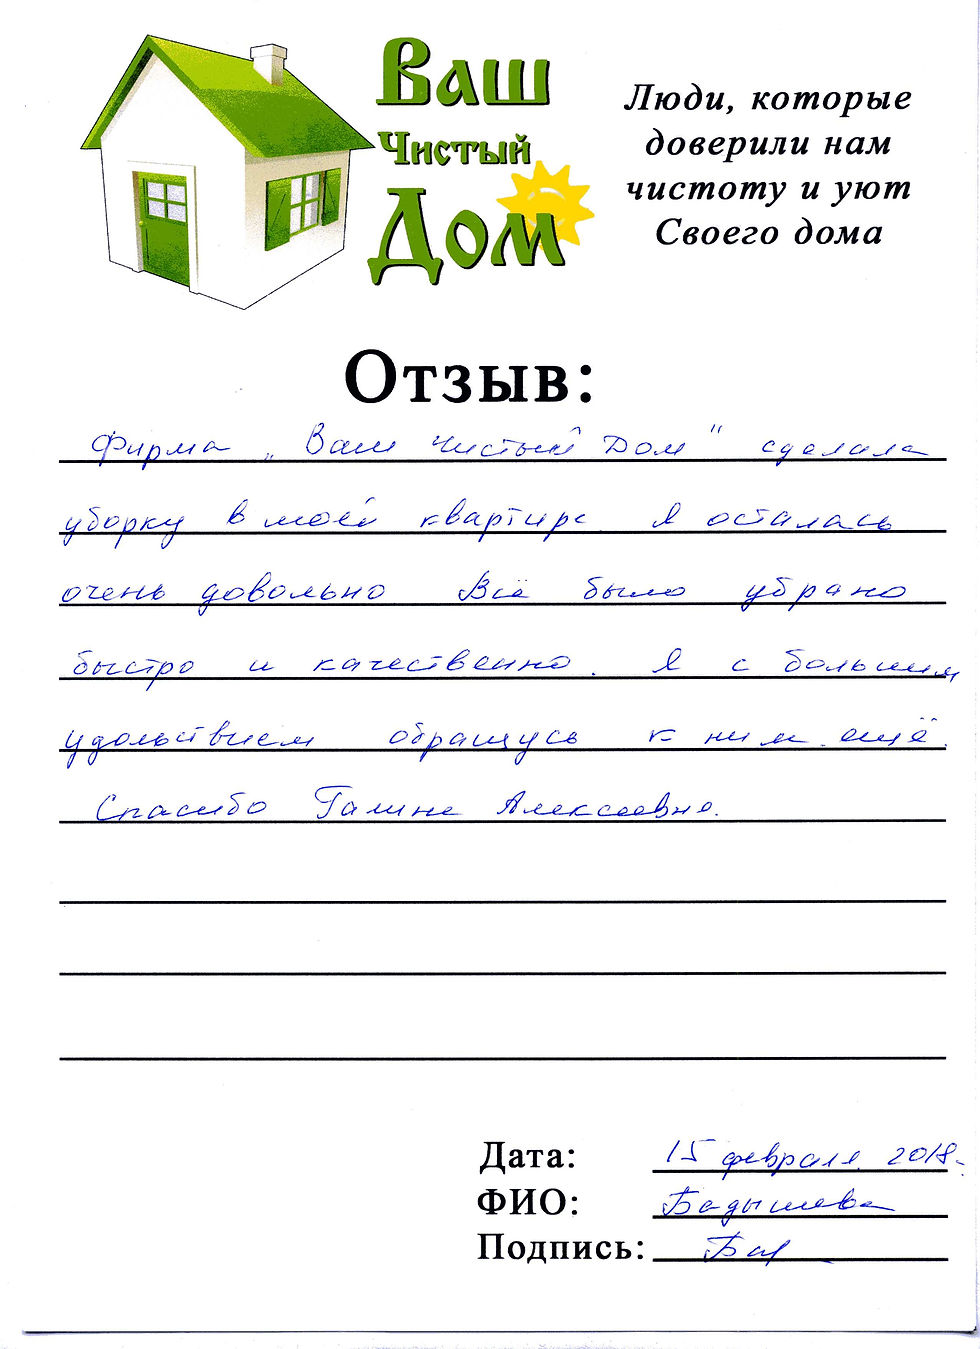 Ваш
Чистый
Дом
Люди, которые
доверили нам
чистоту и уют
Своего дома
Отзыв:
Фирма „Ваш Чистый Дом" сделала
уборку в моей квартире. Я осталась
очень довольно Всё было убрано
быстро и качественно. Я с большим
удольствием обращусь к ним ещё.
Спасибо Галине Алексеевне.
Дата: 15 февраля 2018г.
ФИО: Бадышева
Подпись: Бад